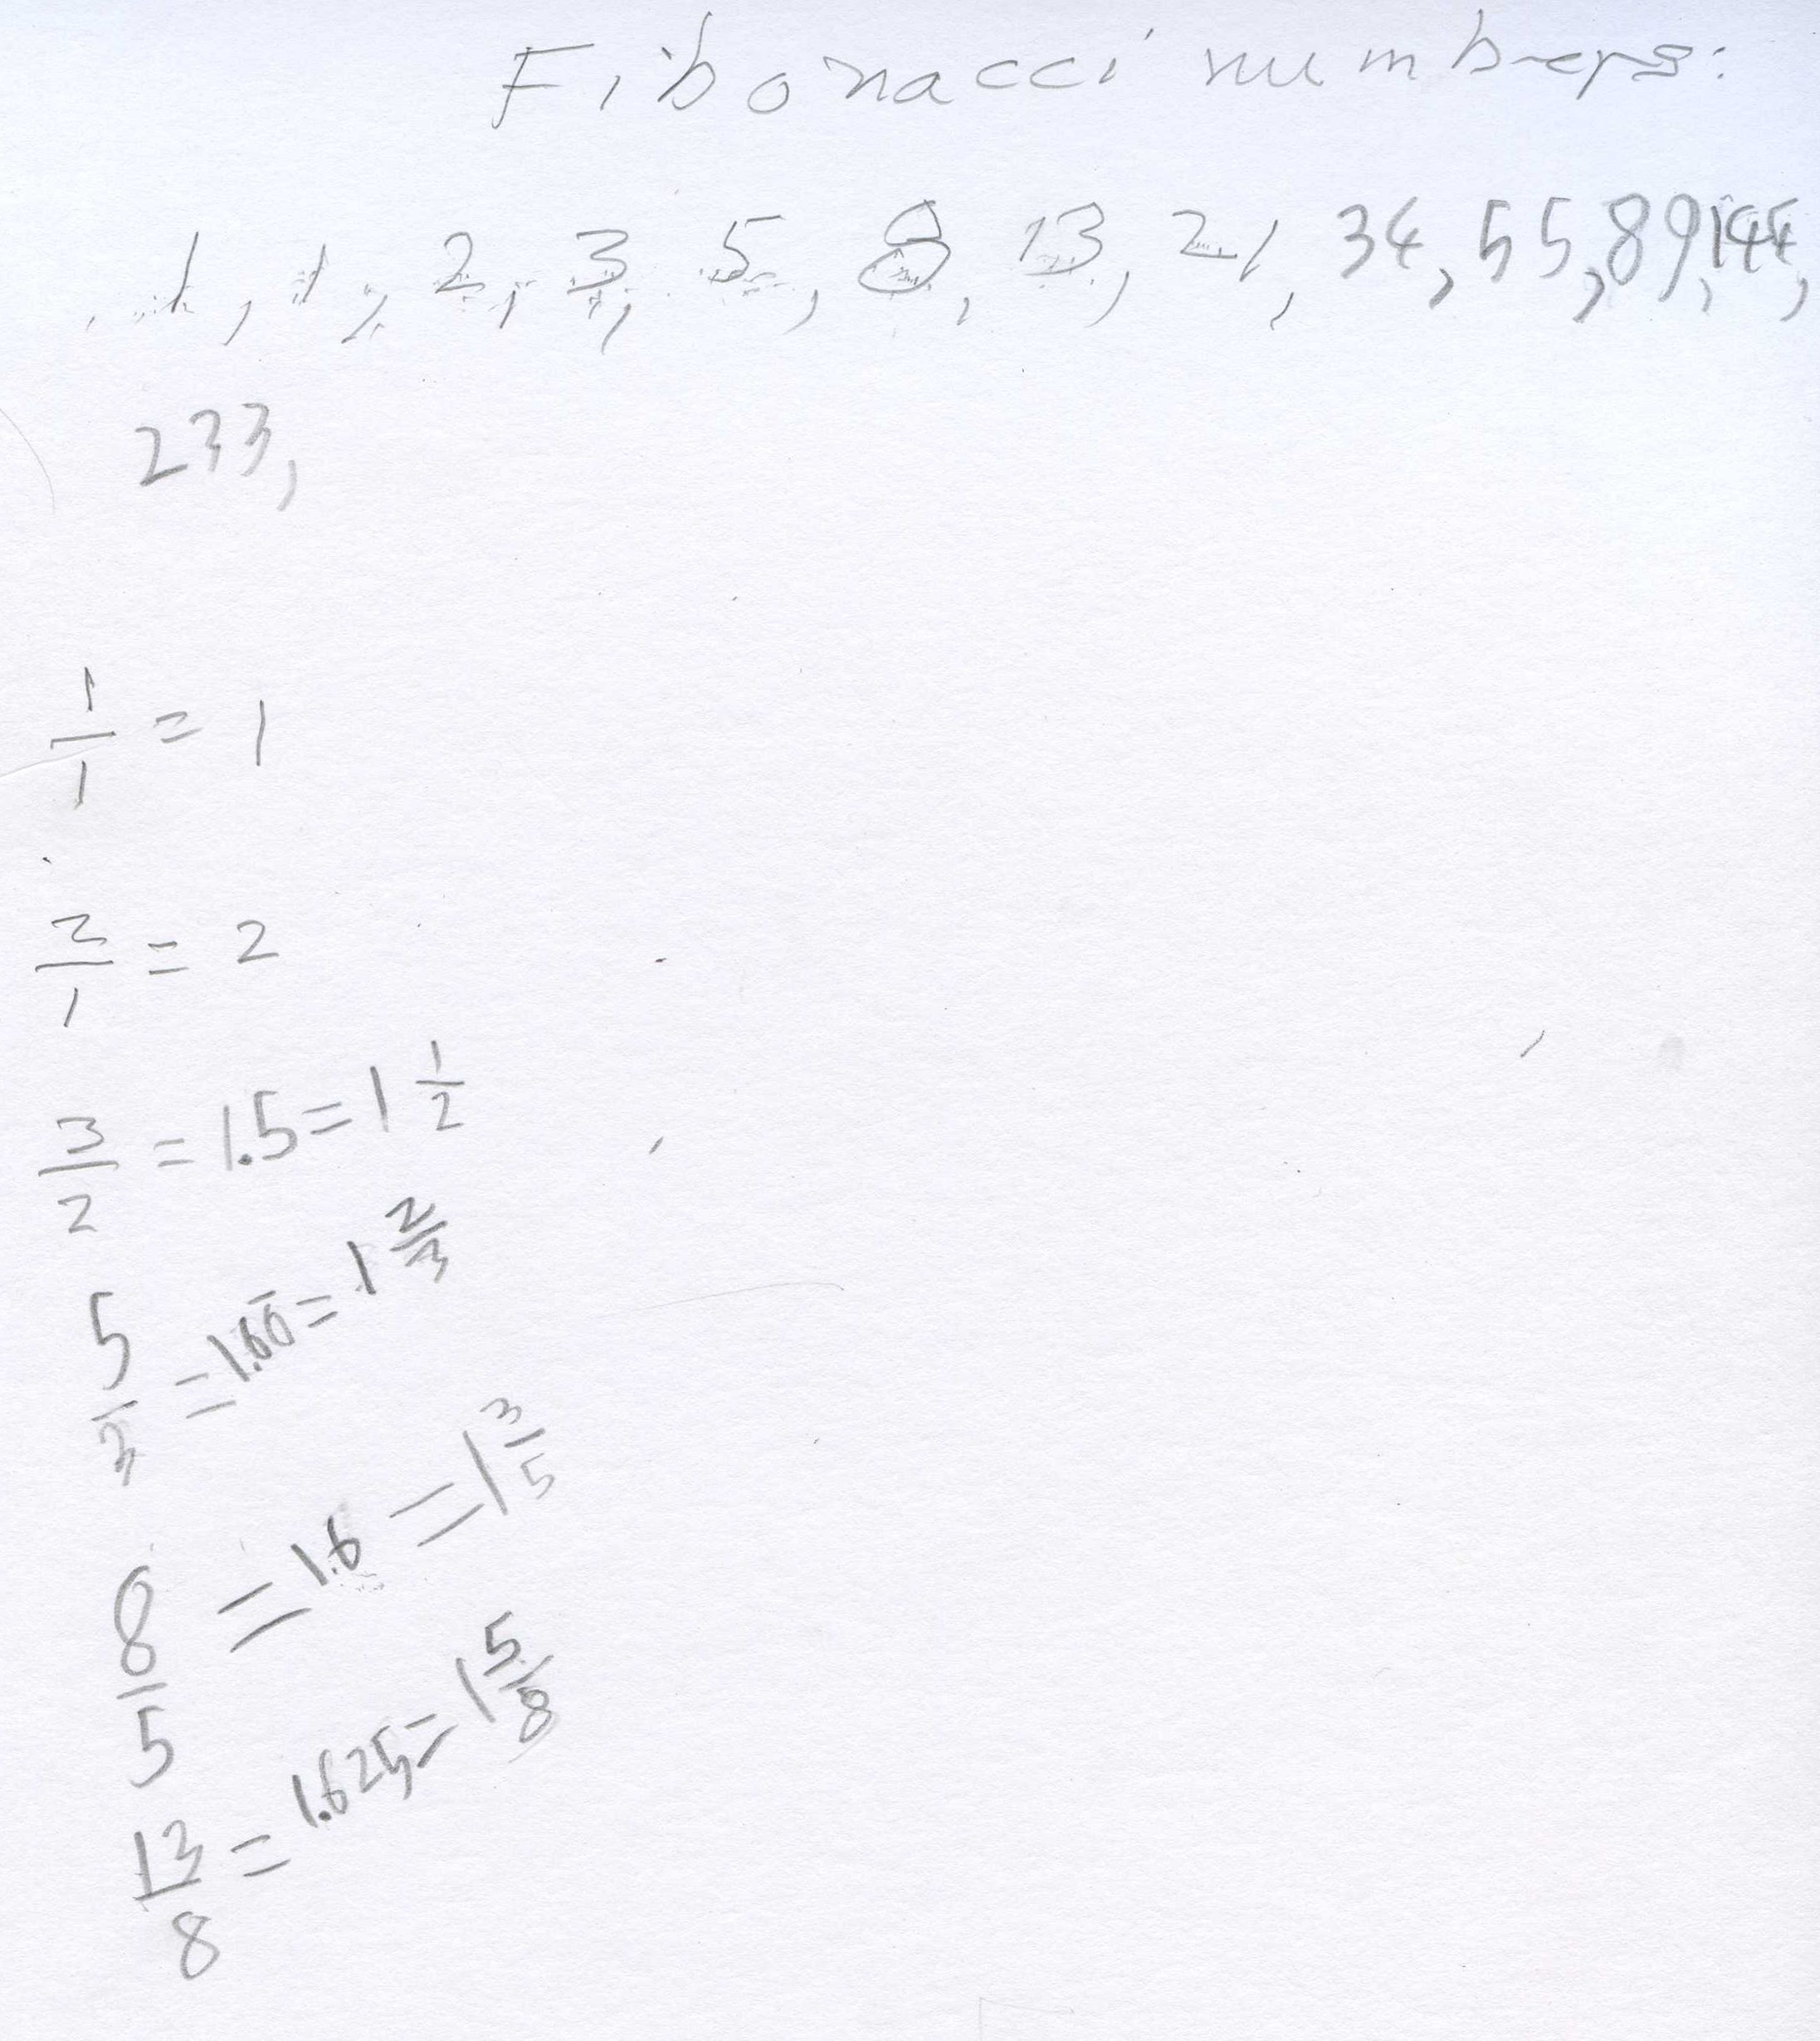 Fibonacci numbers:
1, 1, 2, 3, 5, 8, 13, 21, 34, 55, 89, 144,
233,
1/1 = 1
2/1 = 2
3/2 = 1.5 = 1 1/2
5/3 = 1.66̅ = 1 2/3
8/5 = 1.6 = 1 3/5
13/8 = 1.625 = 1 5/8